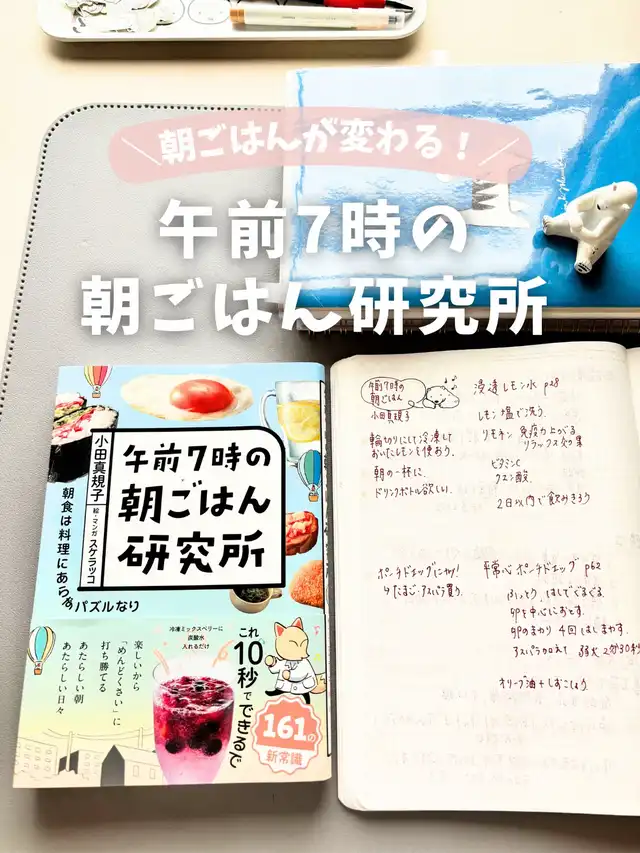 朝ごはんが変わる！
午前7時の
朝ごはん研究所
午前7時の
朝ごはん
研究所
小田真規子
絵・マンガ スケラッコ
朝食は料理にあらず
パズルなり
楽しいから
「めんどくさい」に
打ち勝てる
あたらしい朝
あたらしい日々
冷凍ミックスベリーに
炭酸水
入れるだけ
これ
10秒でできるで
161の
新常識
午前7時の
朝ごはん
小田真規子
輪切りにして冷凍して
おいたレモンを使おう。
朝の一杯に。
ドリンクボトル欲しい。
浸透レモン水 p28
レモン塩で洗う。
リモネン 免疫力上がる
リラックス効果
ビタミンC
クエン酸
2日以内で飲みきろう
ポーチドエッグにトライ!
4 たまご・アスパラ買う。
平常心 ポーチドエッグ p62
はしでぐるぐる
卵を中心におとす。
卵のまわり 4回はしまわす
弱火 2分30秒
オリーブ油+しおこしょう